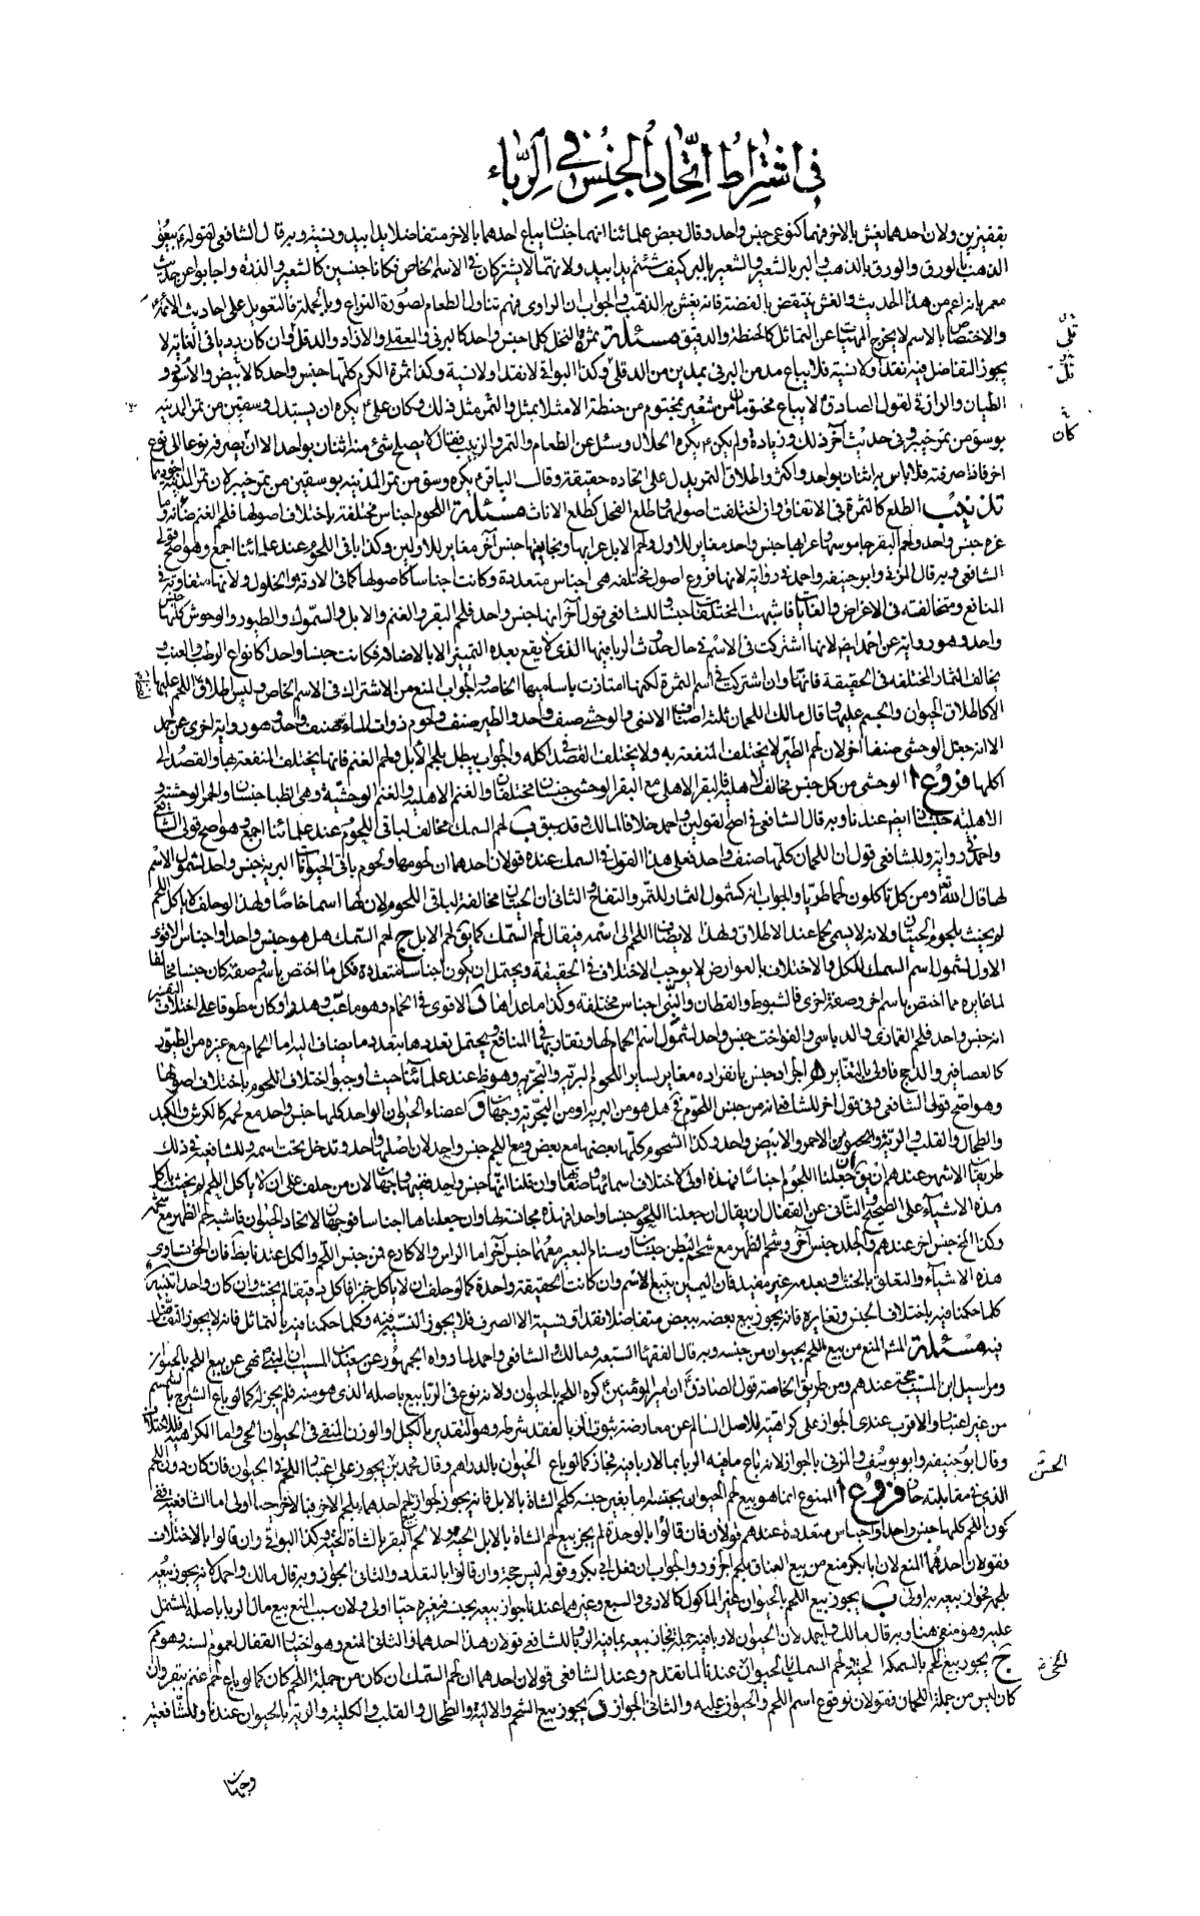 في اشتراط اتحاد الجنس في الرباء
بقفيزين ولان احدهما يغش بالاخر فهما كنوعي جنس واحد وقال بعض علمائنا انهما جنسان يباع احدهما بالاخر متفاضلا يدا بيد ونسيئة وبه قال الشافعي لقوله بيعوا
الذهب بالورق والورق بالذهب والبر بالشعير والشعير بالبر كيف شئتم يدا بيد ولانهما لا يشتركان في الاسم الخاص فكانا جنسين كالشعير والذرة واجابوا عن حديث
معمر بانه اعم من هذا الحديث والغش ينتقض بالفضة فانه يغش بها الذهب والجواب ان الراوي فهم تناول الطعام لصورة النزاع وبالجملة فالتعويل على احاديث الائمة
والاختصاص بالاسم لا يخرج الماهيات عن التماثل كالحنطة والدقيق مسئلة ثمرة النخل كلها جنس واحد كالبرني والمعقلي والازاد والدقل وان كان رديا في الغاية لا
يجوز التفاضل فيه نقدا ولا نسية فلا يباع مد من البرني بمدين من الدقل وكذا البواقي لا نقدا ولا نسية وكذا ثمرة الكرم كلها جنس واحد كالابيض والاسود و
الطيان والرازقي لقول الصادق لا يباع مختومان من شعير بمختوم من حنطة الا مثلا بمثل والثمر مثل ذلك وكان علي يكره ان يستبدل وسقين من تمر المدينة
بوسق من تمر خيبر وفي حديث آخر ذلك وزيادة ولم يكن يكره الحلال وسئل عن الطعام والتمر والزبيب فقال لا يصلح شئ منه اثنان بواحد الا ان تصرفه نوعا الى نوع
اخر فاذا صرفته فلا باس به اثنان بواحد واكثر واطلاق التمر يدل على اتحاده حقيقة وقال الباقر يكره وسق من تمر المدينة بوسقين من تمر خيبر لان تمر المدينة اجودهما
تذنيب الطلع كالثمرة في الاتفاق وان اختلفت اصولهما وطلع الفحل كطلع الاناث مسئلة اللحوم اجناس مختلفة باختلاف اصولها فلحم الغنم ضانه وما
عزه جنس واحد ولحم البقر جاموسها وعرابها جنس واحد مغاير للاول ولحم الابل عرابها وبخاتيها جنس آخر مغاير للاولين وكذا باقي اللحوم عند علمائنا اجمع وهو اصح قولي
الشافعي وبه قال المزني وابو حنيفة واحمد في رواية لانها فروع اصول مختلفة هي اجناس متعددة وكانت اجناسا كاصولها كما في الادقة والخلول ولانها متفاوتة في
المنافع ومتخالفة في الاغراض والغايات فاشبهت المختلفات اجناسا وللشافعي قول آخر انها جنس واحد فلحم البقر والغنم والابل والسموك والطيور والوحوش كلها جنس
واحد وهو رواية عن احمد ايضا لانها اشتركت في الاسم في حال حدوث الربا فيها الذي لا يقع بعده التمييز الا بالاضافة فكانت جنسا واحدا كانواع الرطب والعنب و
يخالف الثمار المختلفة في الحقيقة فانها وان اشتركت في اسم الثمرة لكنها امتازت باساميها الخاصة والجواب المنع من الاشتراك في الاسم الخاص وليس اطلاق اللحم عليها
الا كاطلاق الحيوان والجسم عليها وقال مالك اللحمان ثلثة اصناف الانسي والوحشي صنف واحد والطير صنف ولحوم ذوات الماء صنف واحد وهو رواية اخرى عن احمد
الا انه جعل الوحشي صنفا آخر لان لحم الطير لا يختلف المنفعة به ولا يختلف القصد في اكله والجواب يبطل بلحم الابل ولحم الغنم فانها يختلف المنفعة بها والقصد الى
اكلها فروع ا الوحشي من كل جنس مخالف لاهليه فالبقر الاهلي مع البقر الوحشي جنسان مختلفان والغنم الاهلية والغنم الوحشية وهي الظبا جنسان والحمر الوحشية و
الاهلية جنسان ايضا عندنا وبه قال الشافعي في اصح القولين واحمد خلافا لمالك وقد سبق ب لحم السمك مخالف لباقي اللحوم عند علمائنا اجمع وهو اصح قولي الشافعي
واحمد في رواية وللشافعي قول ان اللحمان كلها صنف واحد فعلى هذا القول في السمك عنده قولان احدهما ان لحومها ولحوم باقي الحيوانات البرية جنس واحد لشمول الاسم
لها قال الله ومن كل تاكلون لحما طريا والجواب انه كشمول الثمار للتمر والتفاح والثاني ان الحيتان مخالفة لباقي اللحوم لان لها اسما خاصا ولهذا لو حلف لا ياكل اللحم
لم يحنث بلحوم الحيتان ولانه لا يسمى لحما عند الاطلاق ولهذا لا يضاف اللحم الى اسمه فيقال لحم السمك كما يق لحم الابل ج لحم السمك هل هو جنس واحد او اجناس الاقوى
الاول لشمول اسم السمك للكل والاختلاف بالعوارض لا يوجب الاختلاف في الحقيقة ويحتمل ان يكون اجناسا متعددة فكل ما اختص باسم وصفة كان جنسا مخالفا
لما غايره مما اختص باسم اخر وصفة اخرى فالشبوط والقطان والبني اجناس مختلفة وكذا ما عداها د الاقوى في الحمام وهو ما عب وهدر او كان مطوقا على اختلاف التفسير
انه جنس واحد فلحم القماري والدباسي والفواخت جنس واحد لشمول اسم الحمام لها وتقاربها في المنافع ويحتمل تعددها بتعدد ما يضاف اليه اما الحمام مع غيره من الطيور
كالعصافير والدجاج فاولى بالتغاير ه الجراد جنس بانفراده مغاير لسائر اللحوم البرية والبحرية وهو ظ عند علمائنا حيث اوجبوا اختلاف اللحوم باختلاف اصولها
وهو اصح قولي الشافعي وفي قول اخر للشافعي انه من جنس اللحوم فح هل هو من البرية او من البحرية وجهان و اعضاء الحيوان الواحد كلها جنس واحد مع لحمه كالكرش والكبد
والطحال والقلب والرية والاحمر والابيض واحد وكذا الشحوم كلها بعضها مع بعض ومع اللحم جنس واحد لان اصلها واحد وتدخل تحت اسمه وللشافعية في ذلك
طريقان الاشهر عندهم ان يق ان جعلنا اللحوم اجناسا فهذه اولى لاختلاف اسمائها وصفاتها وان قلنا انها جنس واحد ففيها وجهان لان من حلف على ان لا ياكل اللحم لم يحنث باكل
هذه الاشياء على الصحيح والثاني عن القفال ان يقال ان جعلنا اللحوم جنسا واحدا فهذه مجانسة لها وان جعلناها اجناسا فوجهان لاتحاد الحيوان فاشبه لحم الظهر مع شحمه
وكذا المخ جنس اخر عندهم والجلد جنس آخر وشحم الظهر مع شحم البطن جنسان وسنام البعير معهما جنس آخر اما الراس والاكارع فمن جنس اللحم والكل عندنا باطل فان الحق تساوي
هذه الاشياء والتعلق بالحنث وبعدمه غير مفيد فان اليمين يتبع الاسم وان كانت الحقيقة واحدة كما لو حلف ان لا ياكل خبزا فاكل دقيقا لم يحنث وان كان واحدا تنبيه
كلما حكمنا فيه باختلاف الجنس وتغايره فانه يجوز بيع بعضه ببعض متفاضلا نقدا ونسية الا الصرف فلا يجوز النسية فيه وكلما حكمنا فيه بالتماثل فانه لا يجوز التفاضل
فيه مسئلة المشهور المنع من بيع اللحم بحيوان من جنسه وبه قال الفقهاء السبعة ومالك والشافعي واحمد لما رواه الجمهور عن سعيد بن المسيب ان النبي نهى عن بيع اللحم بالحيوان
ومراسيل ابن المسيب حجة عندهم ومن طريق الخاصة قول الصادق ان امير المؤمنين كره اللحم بالحيوان ولانه نوع فيه الربا بيع باصله الذي هو منه فلم يجز كما لو باع الشيرج بالسمسم
من غير اعتبار والاقرب عندي الجواز على كراهية للاصل السالم عن معارضة ثبوت الربا لفقد شرطه وهو التقدير بالكيل او الوزن المنفي في الحيوان الحي واما الكراهية فللاختلاف
وقال ابو حنيفة وابو يوسف والمزني بالجواز لانه باع ما فيه الربا بما لا ربا فيه فجاز كما لو باع الحيوان بالدراهم وقال محمد بن يجوز على اعتبار اللحم في الحيوان فان كان دون اللحم
الذي في مقابلته جاز فروع ا الممنوع انما هو بيع لحم الحيوان بجنسه اما بغير جنسه كلحم الشاة بالابل فانه يجوز لجواز بيع لحم احدهما بلحم الاخر فبالاخر حيا اولى اما الشافعية ففي
كون اللحم كلها جنس واحد او اجناس متعددة عندهم قولان فان قالوا بالوحدة لم يجز بيع لحم الشاة بالابل الحية ولا لحم البقر بالشاة الحية وكذا البواقي وان قالوا بالاختلاف
فقولان احدهما المنع لان ابا بكر منع من بيع العناق بلحم الجزور والجواب ان فعل ابي بكر وقوله ليس حجة وان قالوا بالتعدد والثاني الجواز وبه قال مالك واحمد لانه يجوز بيعه
بلحمه فجواز بيعه به اولى ب يجوز بيع اللحم بالحيوان غير الماكول كالادمي والسبع وغيرهما عندنا لجواز بيعه بجنسه فبغيره حيا اولى ولان سبب المنع بيع مال الربا باصله المشتمل
عليه وهو منفي هنا وبه قال مالك واحمد لان الحيوان لا ربا فيه جملة فجاز بيعه بما فيه الربا وللشافعي قولان هذا احدهما والثاني المنع وهو اختيار القفال لعموم السنة وهو مم
ج يجوز بيع اللحم بالسمكة الحية ولحم السمك بالحيوان عندنا لما تقدم وعند الشافعي قولان احدهما ان لحم السمك ان كان من جملة اللحم كان كما لو باع لحم غنم ببقر وان
كان ليس من جملة اللحمان فقولان لوقوع اسم اللحم والحيوان عليه والثاني الجواز د يجوز بيع الشحم والالية والطحال والقلب والكلية والرية بالحيوان عندنا وللشافعية
وجهان
كان